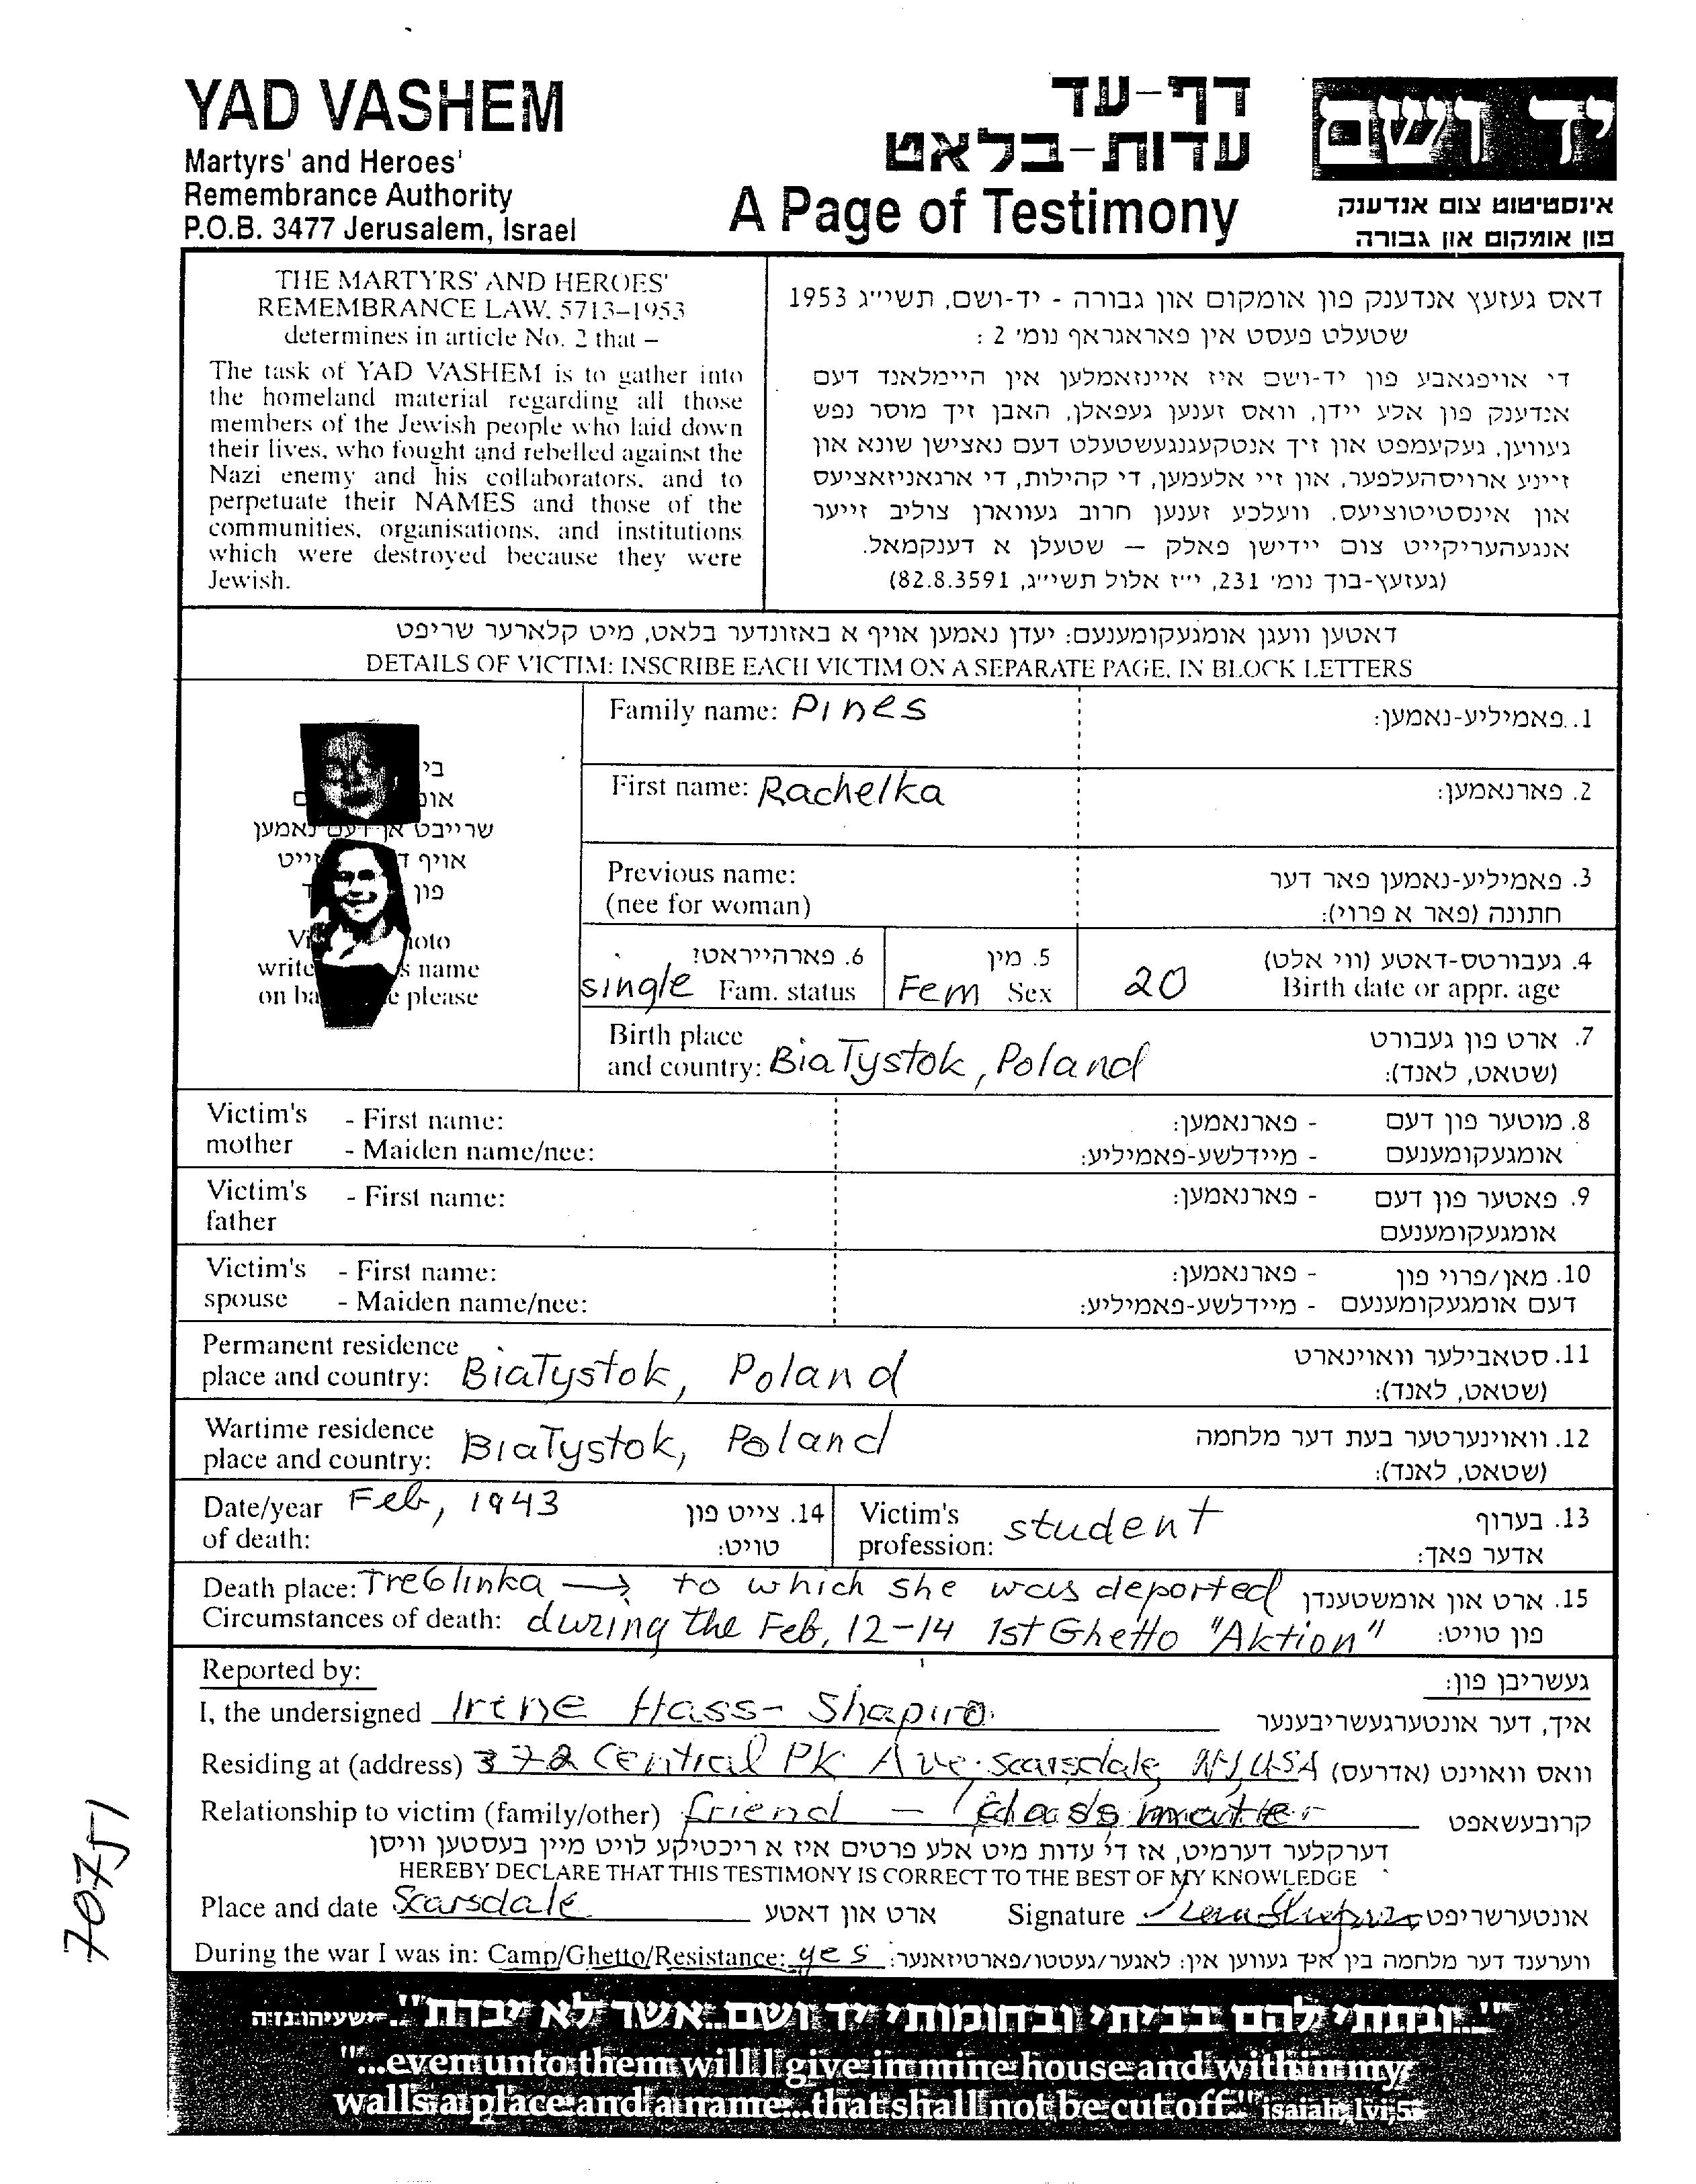 YAD VASHEM
Martyrs' and Heroes'
Remembrance Authority
P.O.B. 3477 Jerusalem, Israel
דף-עד
עדות-בלאט
A Page of Testimony
יד ושם
אינסטיטוט צום אנדענק
פון אומקום און גבורה
THE MARTYRS' AND HEROES'
REMEMBRANCE LAW, 5713–1953
determines in article No. 2 that –
The task of YAD VASHEM is to gather into
the homeland material regarding all those
members of the Jewish people who laid down
their lives, who fought and rebelled against the
Nazi enemy and his collaborators, and to
perpetuate their NAMES and those of the
communities, organisations, and institutions
which were destroyed because they were
Jewish.
דאס געזעץ אנדענק פון אומקום און גבורה - יד-ושם, תשי״ג 1953
שטעלט פעסט אין פאראגראף נומ' 2 :
די אויפגאבע פון יד-ושם איז איינזאמלען אין היימלאנד דעם
אנדענק פון אלע יידן, וואס זענען געפאלן, האבן זיך מוסר נפש
געווען, געקעמפט און זיך אנטקעגנגעשטעלט דעם נאצישן שונא און
זיינע ארויסהעלפער, און זיי אלעמען, די קהילות, די ארגאניזאציעס
און אינסטיטוציעס, וועלכע זענען חרוב געווארן צוליב זייער
אנגעהעריקייט צום יידישן פאלק – שטעלן א דענקמאל.
(געזעץ-בוך נומ' 231, י״ז אלול תשי״ג, 82.8.3591)
דאטען וועגן אומגעקומענעם: יעדן נאמען אויף א באזונדער בלאט, מיט קלארער שריפט
DETAILS OF VICTIM: INSCRIBE EACH VICTIM ON A SEPARATE PAGE, IN BLOCK LETTERS
שרייבט אן דעם נאמען
אויף
פון
write name
on please
Family name: Pines 1. פאמיליע-נאמען:
First name: Rachelka 2. פארנאמען:
Previous name: 3. פאמיליע-נאמען פאר דער
(nee for woman) חתונה (פאר א פרוי):
6. פארהייראט? 5. מין 4. געבורטס-דאטע (ווי אלט)
single Fam. status Fem Sex 20 Birth date or appr. age
Birth place 7. ארט פון געבורט
and country: Białystok, Poland (שטאט, לאנד):
Victim's - First name: - פארנאמען: 8. מוטער פון דעם
mother - Maiden name/nee: - מיידלשע-פאמיליע: אומגעקומענעם
Victim's - First name: - פארנאמען: 9. פאטער פון דעם
father אומגעקומענעם
Victim's - First name: - פארנאמען: 10. מאן/פרוי פון
spouse - Maiden name/nee: - מיידלשע-פאמיליע: דעם אומגעקומענעם
Permanent residence 11. סטאבילער וואוינארט
place and country: Białystok, Poland (שטאט, לאנד):
Wartime residence 12. וואוינערטער בעת דער מלחמה
place and country: Białystok, Poland (שטאט, לאנד):
Date/year Feb, 1943 14. צייט פון Victim's 13. בערוף
of death: טויט: profession: student אדער פאך:
Death place: Treblinka → to which she was deported 15. ארט און אומשטענדן
Circumstances of death: during the Feb, 12-14 1st Ghetto "Aktion" פון טויט:
Reported by: געשריבן פון:
I, the undersigned Irene Hass-Shapiro איך, דער אונטערגעשריבענער
Residing at (address) 372 Central Pk Ave. Scarsdale, NY, USA וואס וואוינט (אדרעס)
Relationship to victim (family/other) friend - classmate קרובעשאפט
דערקלער דערמיט, אז די עדות מיט אלע פרטים איז א ריכטיקע לויט מיין בעסטען וויסן
HEREBY DECLARE THAT THIS TESTIMONY IS CORRECT TO THE BEST OF MY KNOWLEDGE
Place and date Scarsdale ארט און דאטע Signature אונטערשריפט
During the war I was in: Camp/Ghetto/Resistance: yes ווערענד דער מלחמה בין איך געווען אין: לאגער/געטטו/פארטיזאנער:
70751
"...ונתתי להם בביתי ובחומותי יד ושם...אשר לא יכרת". ישעיהו נו ה
"...even unto them will I give in mine house and within my
walls a place and a name...that shall not be cut off." isaiah, lvi,5